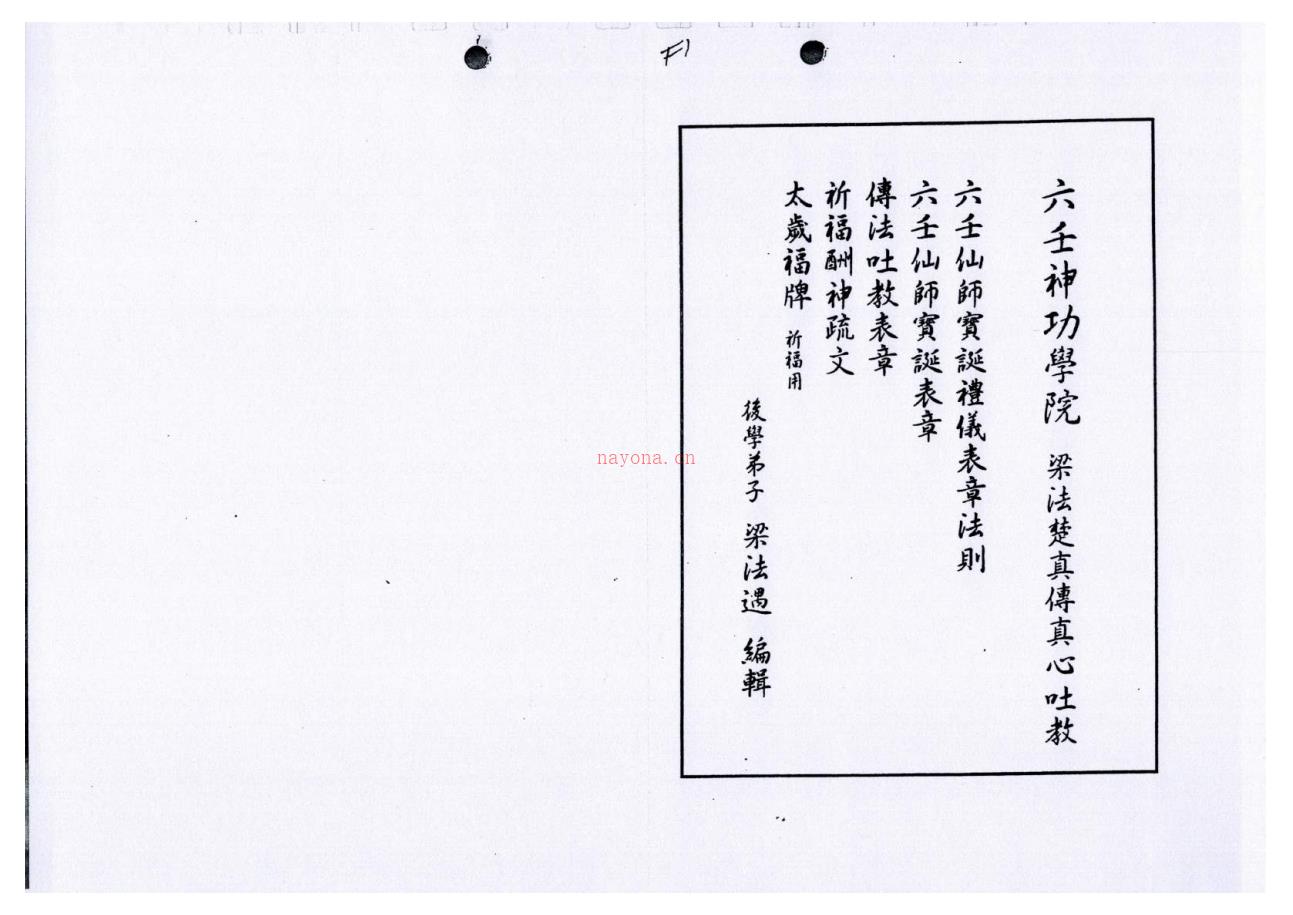 F1
六壬神功學院 梁法楚真傳真心吐教
六壬仙師寶誕禮儀表章法則
六壬仙師寶誕表章
傳法吐教表章
祈福酬神疏文
太歲福牌 祈福用
後學弟子 梁法遇 編輯
nayona.cn